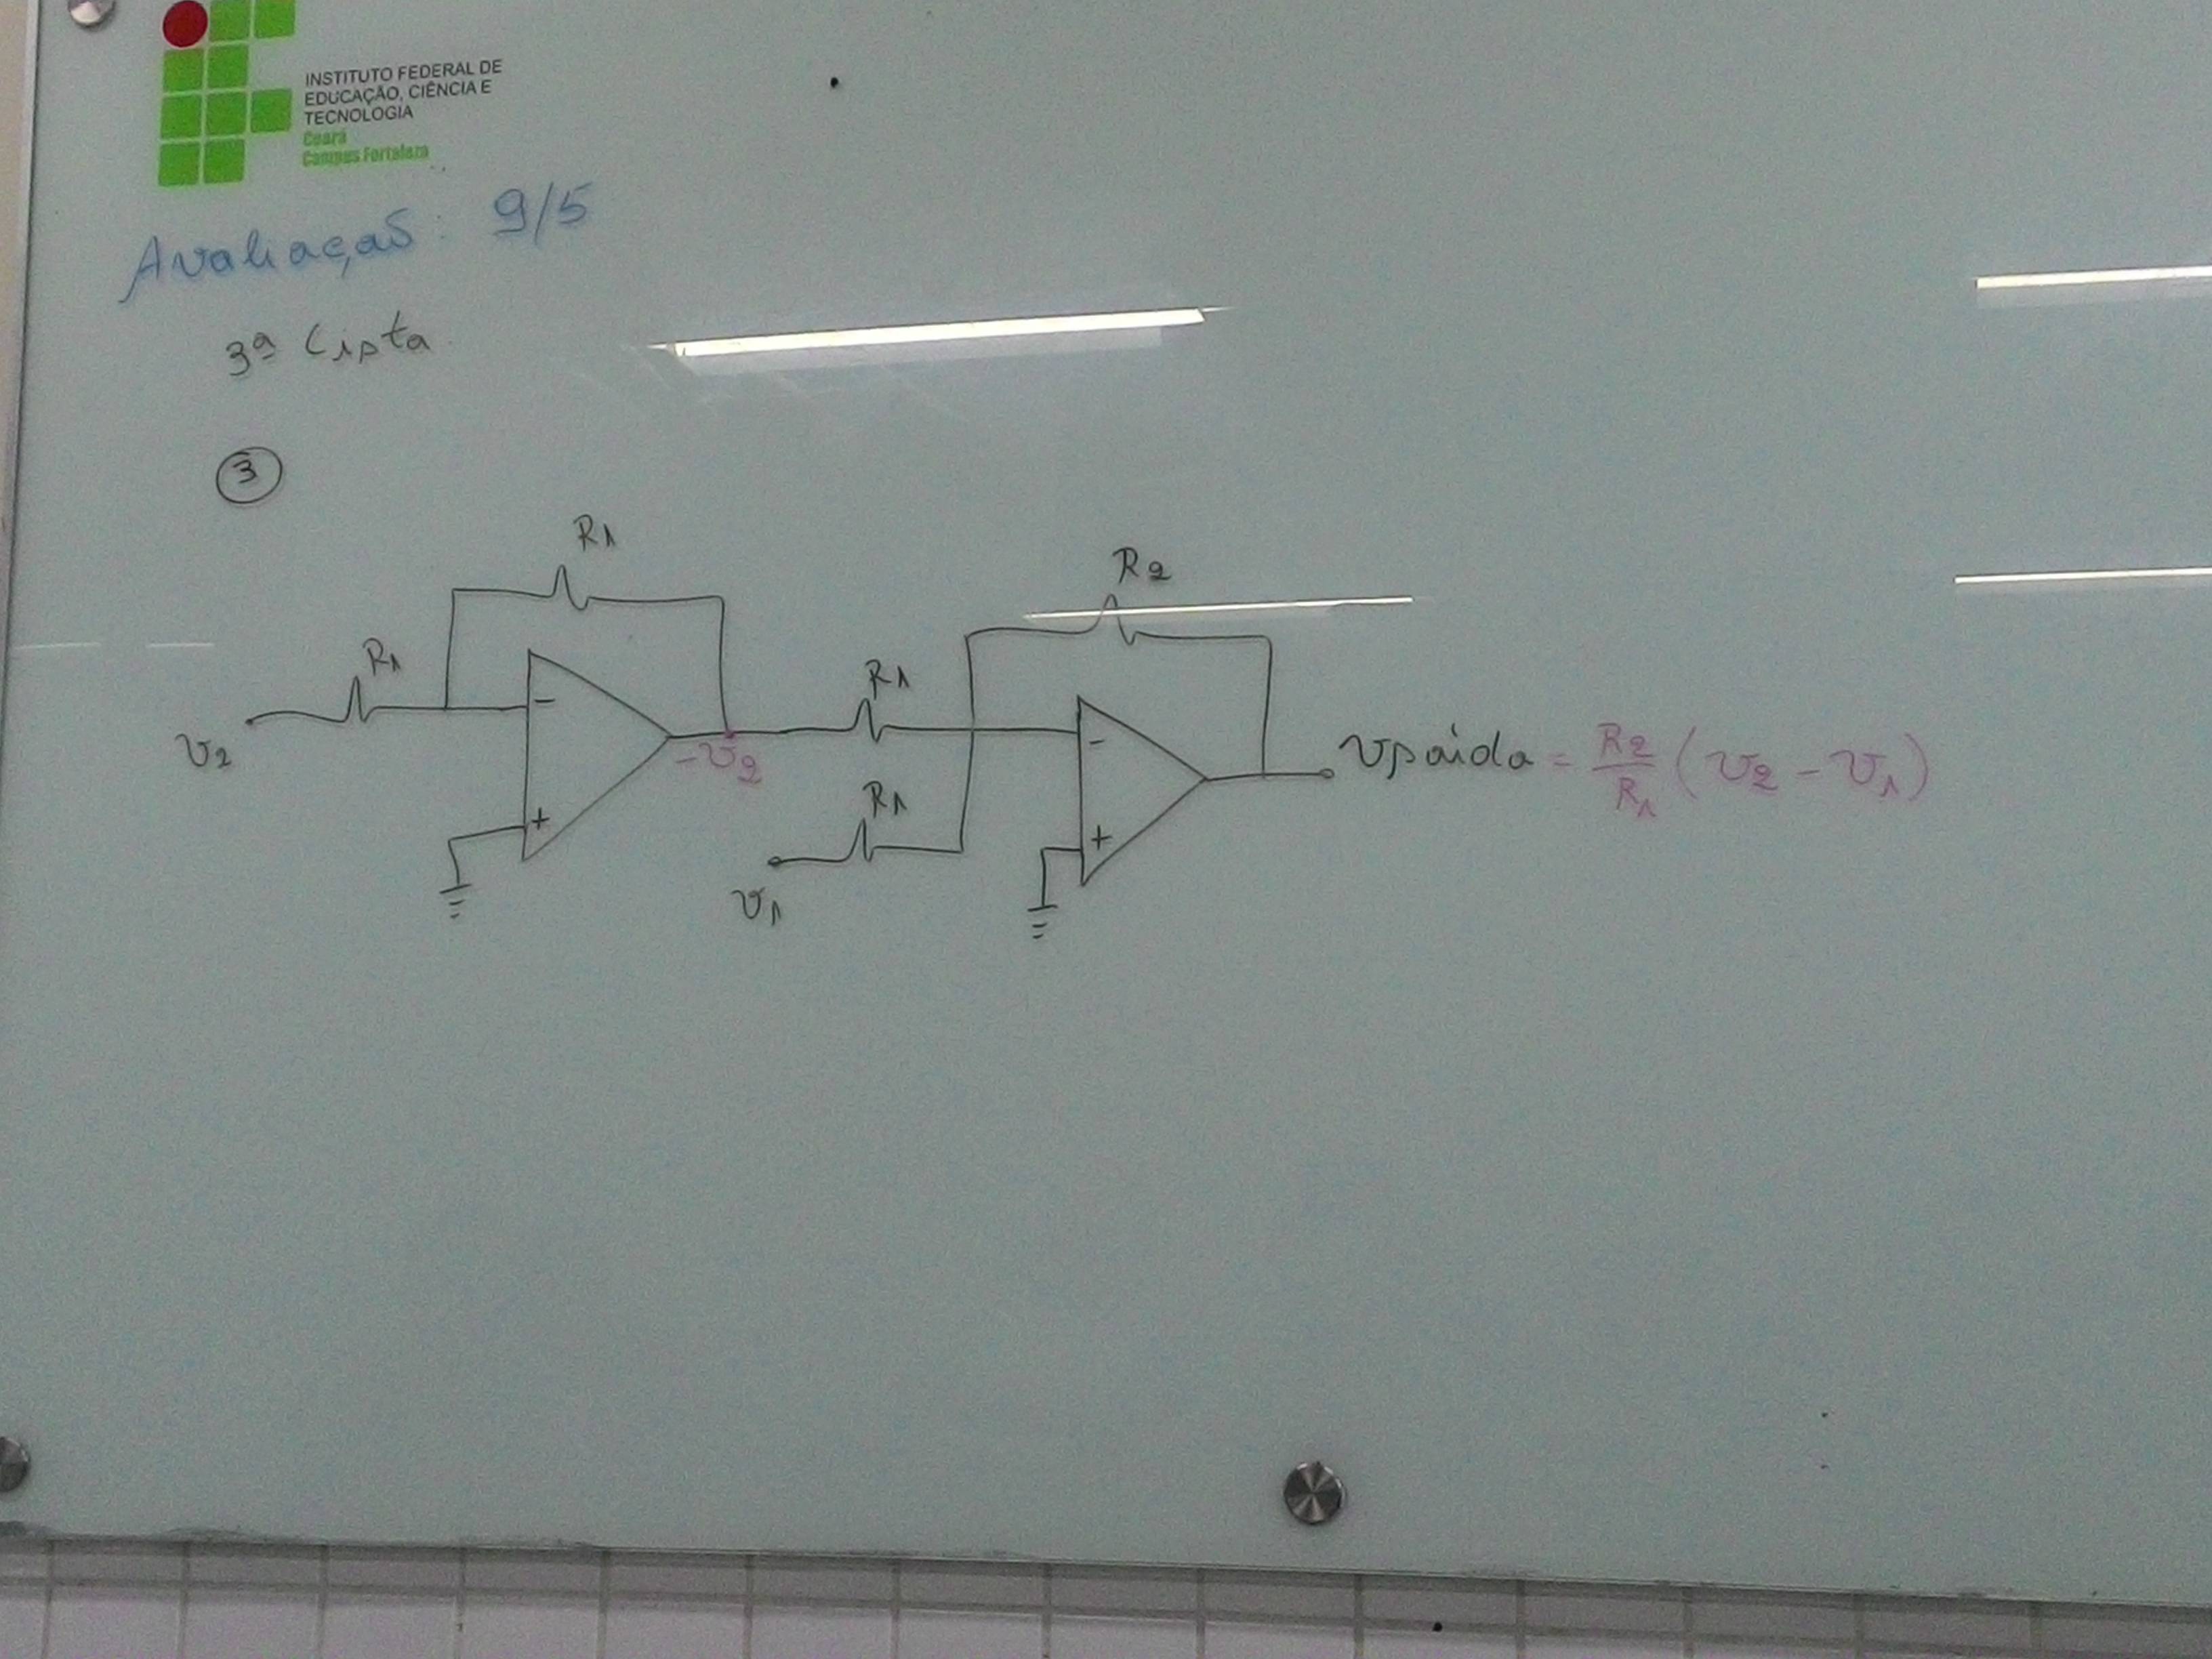 INSTITUTO FEDERAL DE
EDUCAÇÃO, CIÊNCIA E
TECNOLOGIA
Ceará
Campus Fortaleza
Avaliação: 9/5
3ª Lista
3
R1
R2
R1
R1
v2
-
-v2
-
vsaída = R2/R1 (v2 - v1)
R1
+
+
v1